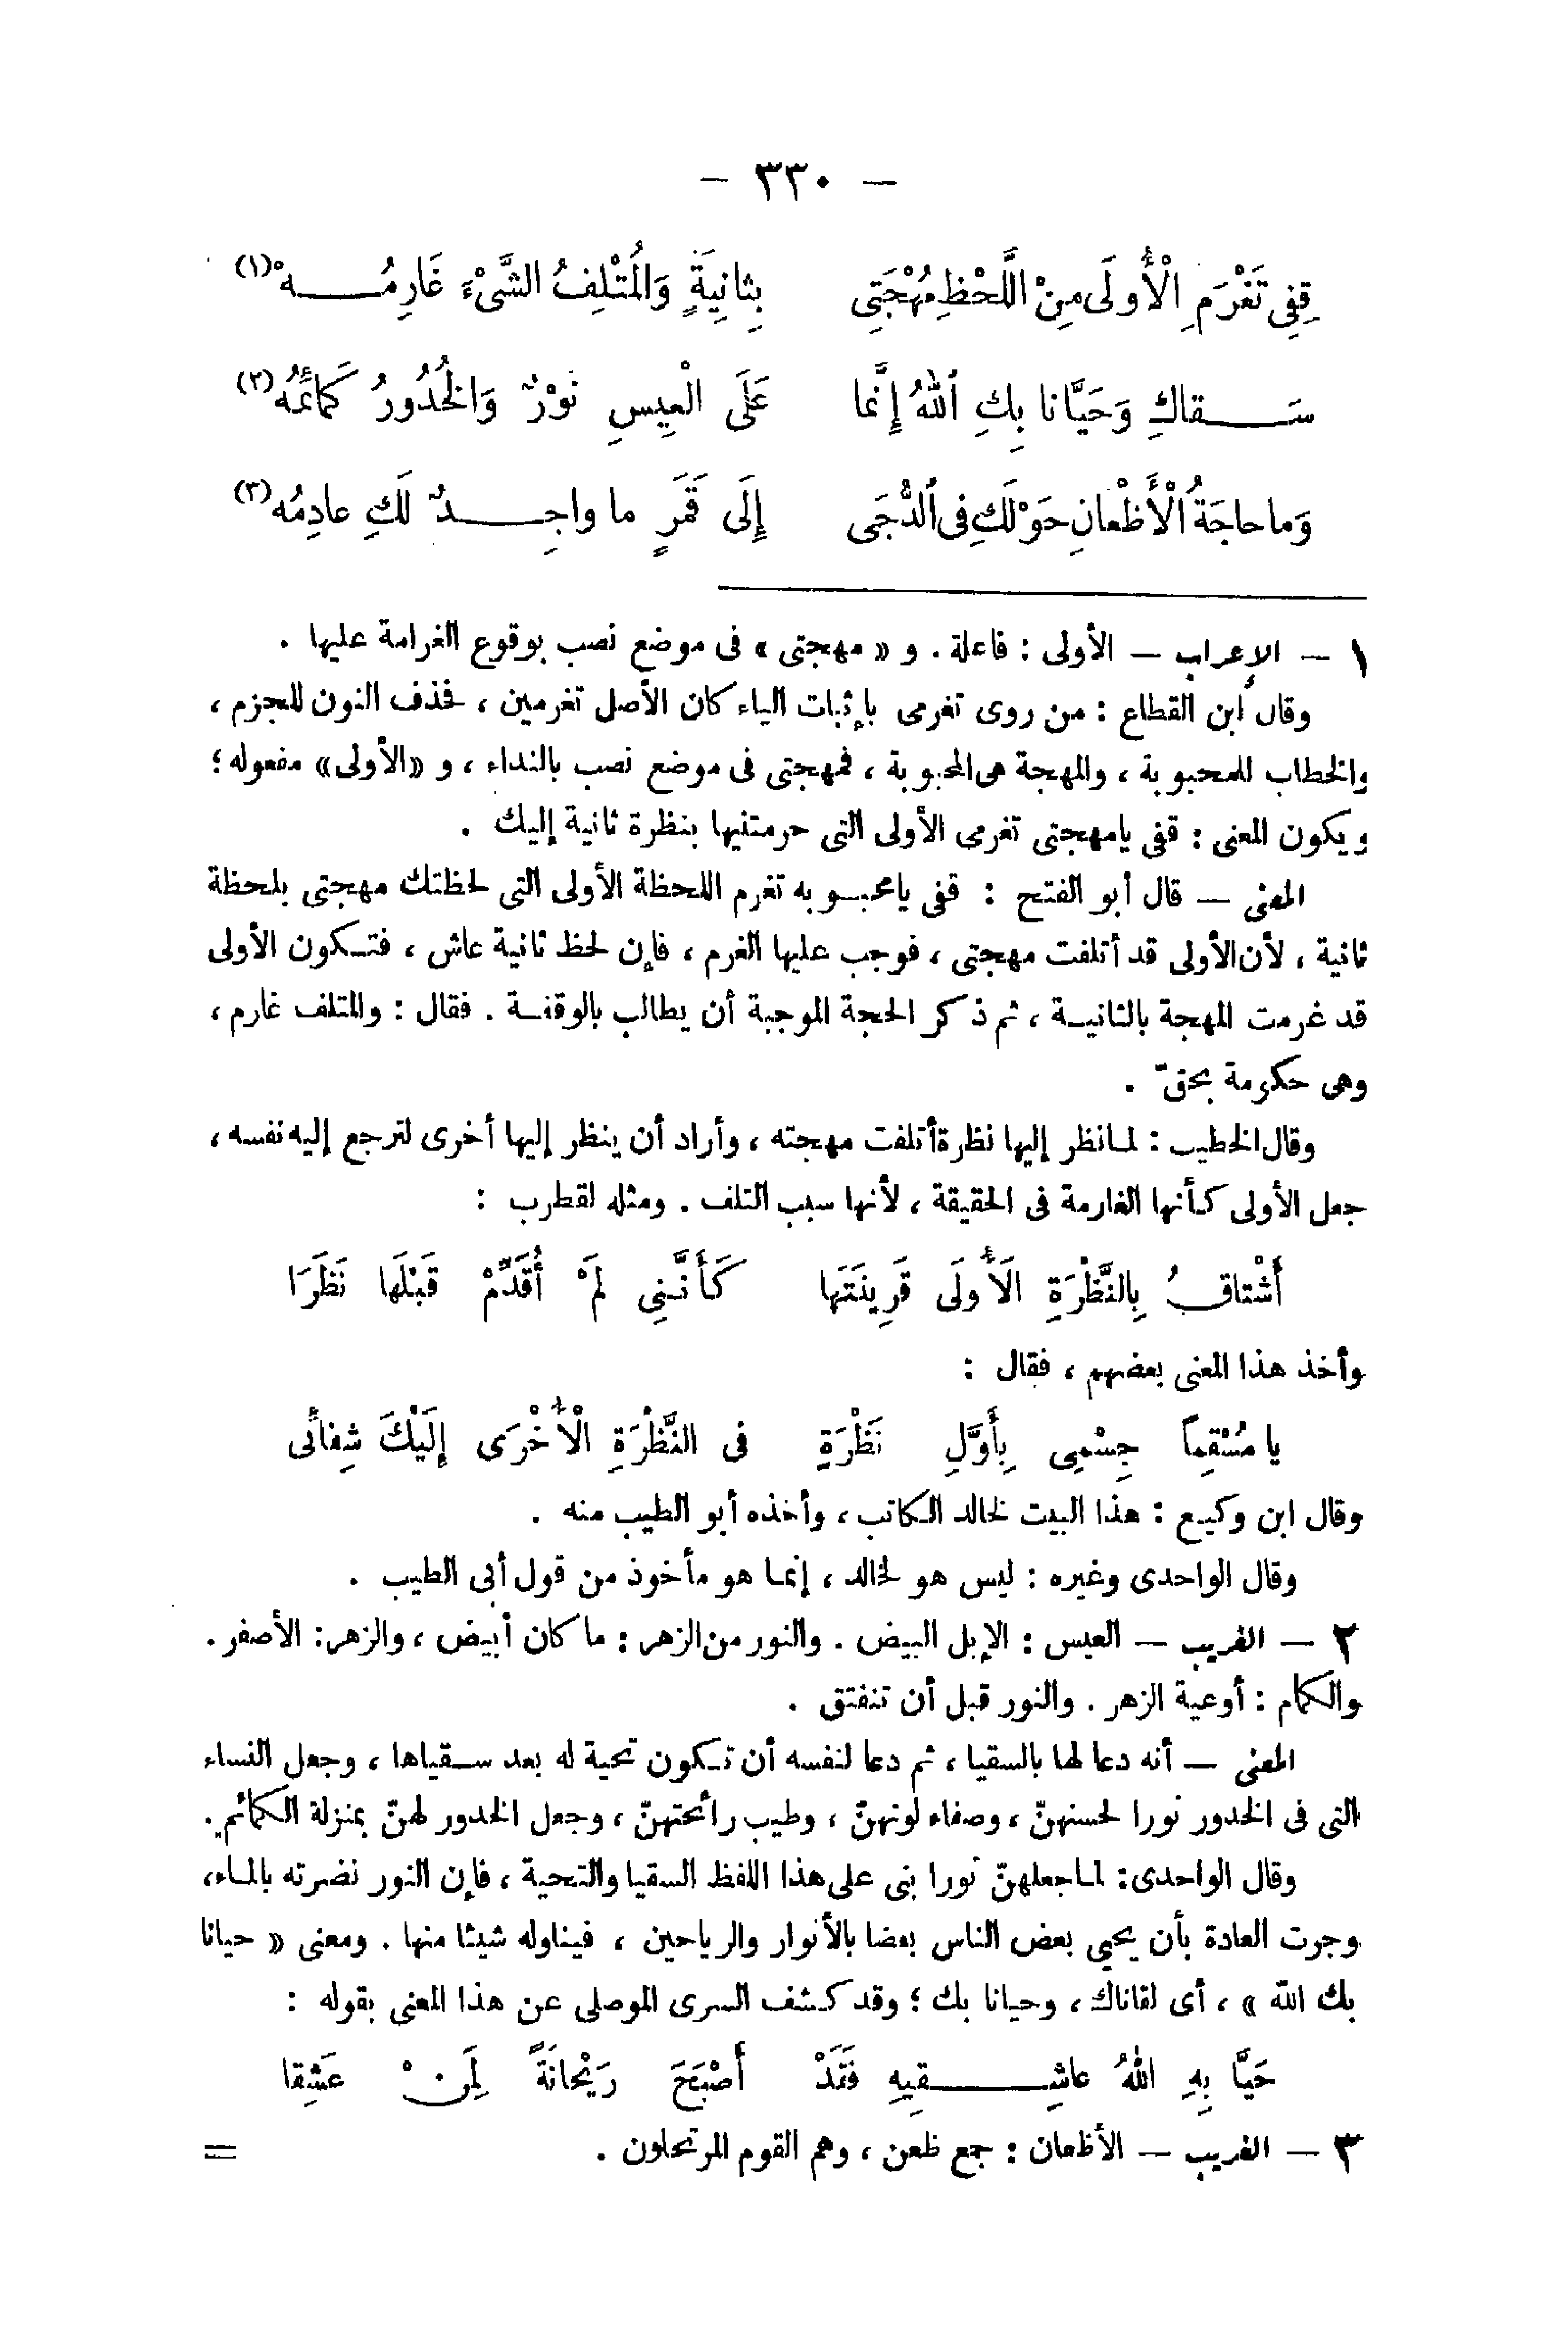 – ٣٣٠ –
قِفِى تَغْرَمِ الْأُولَى مِنْ اللَّحْظِ مُهْجَتِى    بِثانِيَةٍ وَالمُتْلِفُ الشَّىْءَ غَارِمُـــهْ(١)
سَـــقاكِ وَحَيَّانا بِكِ ٱللهُ إِنَّما    عَلَى الْعِيسِ نَوْرٌ وَالخُدُورُ كَمائِمُهُ(٢)
وَما حاجَةُ الْأَظْعانِ حَوْلَكِ فى ٱلدُّجَى    إِلَى قَمَرٍ ما واجِـــدٌ لَكِ عادِمُه(٣)
١ – الإعراب – الأولى : فاعلة . و « مهجتى » فى موضع نصب بوقوع الغرامة عليها .
وقال ابن القطاع : من روى تغرمى بإثبات الياء كان الأصل تغرمين ، فحذف النون للجزم ،
والخطاب للمحبوبة ، والمهجة هى المحبوبة ، فمهجتى فى موضع نصب بالنداء ، و «الأولى» مفعوله ؛
ويكون المعنى : قفى يامهجتى تغرمى الأولى التى حرمتنيها بنظرة ثانية إليك .
المعنى – قال أبو الفتح : قفى يامحبوبه تغرم اللحظة الأولى التى لحظتك مهجتى بلحظة
ثانية ، لأن الأولى قد أتلفت مهجتى ، فوجب عليها الغرم ، فإن لحظ ثانية عاش ، فتكون الأولى
قد غرمت المهجة بالثانيـة ، ثم ذكر الحجة الموجبة أن يطالب بالوقفـة . فقال : والمتلف غارم ،
وهى حكومة بحقّ .
وقال الخطيب : لما نظر إليها نظرة أتلفت مهجته ، وأراد أن ينظر إليها أخرى لترجع إليه نفسه ،
جعل الأولى كأنها الغارمة فى الحقيقة ، لأنها سبب التلف . ومثله لقطرب :
أَشْتاقُ بِالنَّظْرَةِ الَاُولَى قَرِينَتَها    كَأَنَّنِى لَمْ أُقَدِّمْ قَبْلَها نَظَرَا
وأخذ هذا المعنى بعضهم ، فقال :
يا مُسْقِماً جِسْمِى بِأَوَّلِ نَظْرَةٍ    فى النَّظْرَةِ الْأُخْرَى إِلَيْكَ شِفائى
وقال ابن وكيع : هذا البيت لخالد الكاتب ، وأخذه أبو الطيب منه .
وقال الواحدى وغيره : ليس هو لخالد ، إنما هو مأخوذ من قول أبى الطيب .
٢ – الغريب – العيس : الإبل البيض . والنور من الزهر : ما كان أبيض ، والزهر: الأصفر .
والكمام : أوعية الزهر . والنور قبل أن تنفتق .
المعنى – أنه دعا لها بالسقيا ، ثم دعا لنفسه أن تكون تحية له بعد سـقياها ، وجعل النساء
التى فى الخدور نورا لحسنهنّ ، وصفاء لونهنّ ، وطيب رائحتهنّ ، وجعل الخدور لهنّ بمنزلة الكمائم .
وقال الواحدى: لما جعلهنّ نورا بنى على هذا اللفظ السقيا والتحية ، فإن النور نضرته بالماء،
وجرت العادة بأن يحيى بعض الناس بعضا بالأنوار والرياحين ، فيناوله شيئا منها . ومعنى « حيانا
بك الله » ، أى لقاناك ، وحيانا بك ؛ وقد كشف السرى الموصلى عن هذا المعنى بقوله :
حَيَّا بِهِ اللهُ عاشِـــقِيهِ فَقَدْ    أَصْبَحَ رَيْحانَةً لِمَنْ عَشِقا
٣ – الغريب – الأظعان : جمع ظعن ، وهم القوم المرتحلون .    =